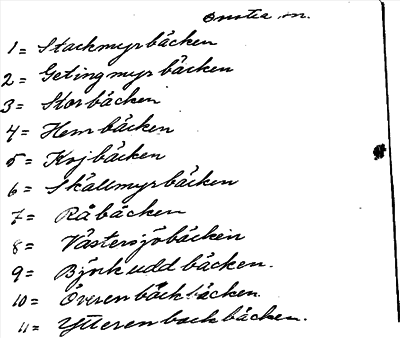 1 = Stackmyrbäcken
2 = Getingmyrbäcken
3 = Storbäcken
4 = Hembäcken
5 = Kojbäcken
6 = Skållmyrbäcken
7 = Råbäcken
8 = Västersjöbäcken
9 = Björkuddbäcken.
10 = Överenbäckbäcken.
11 = Ytterenbackbäcken.